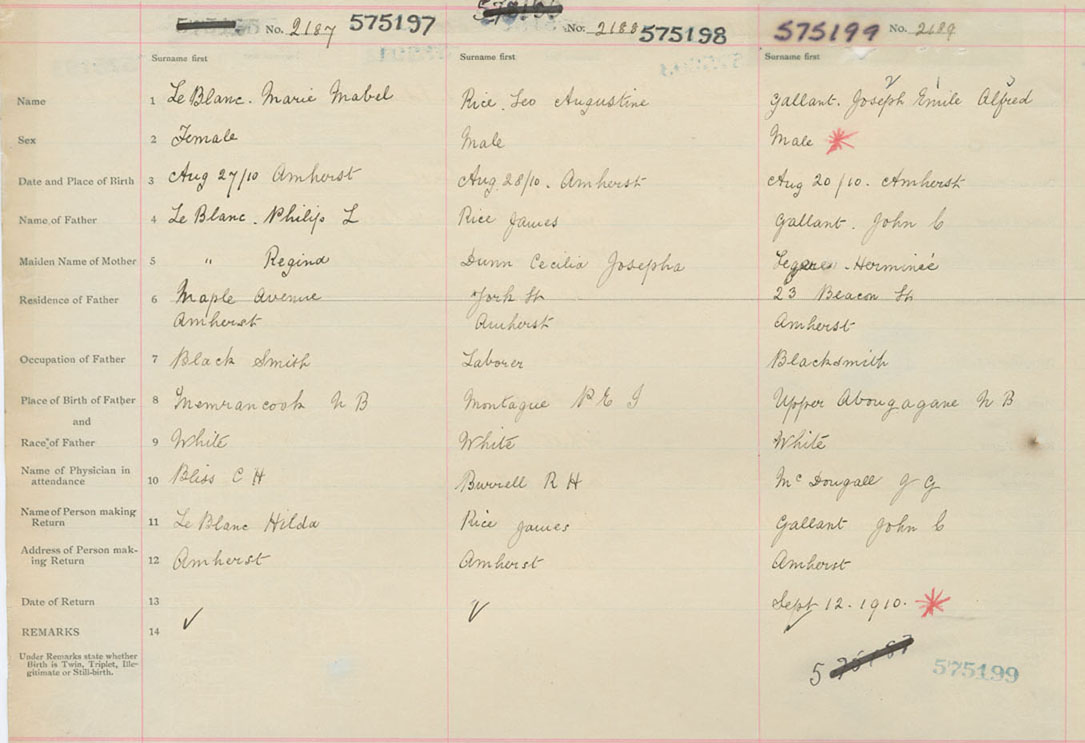 No. 2187 575197 No. 2188 575198 575199 No. 2189
Surname first Surname first Surname first
Name 1 Le Blanc. Marie Mabel Rice. Leo Augustine Gallant. Joseph Emile Alfred
Sex 2 Female Male Male
Date and Place of Birth 3 Aug 27/10 Amherst Aug. 28/10. Amherst Aug 20/10. Amherst
Name of Father 4 Le Blanc. Philip L Rice James Gallant. John C
Maiden Name of Mother 5 " Regina Dunn Cecilia Josepha Legere. Herminée
Residence of Father 6 Maple Avenue York St 23 Beacon St
Amherst Amherst Amherst
Occupation of Father 7 Black Smith Laborer Blacksmith
Place of Birth of Father 8 Memramcook N B Montague P E I Upper Abougagane N B
and
Race of Father 9 White White White
Name of Physician in
attendance 10 Bliss C H Burrell R H McDougall J G
Name of Person making
Return 11 Le Blanc Hilda Rice James Gallant John C
Address of Person mak-
ing Return 12 Amherst Amherst Amherst
Date of Return 13 Sept 12. 1910.
REMARKS 14
Under Remarks state whether
Birth is Twin, Triplet, Ille-
gitimate or Still-birth.
575199